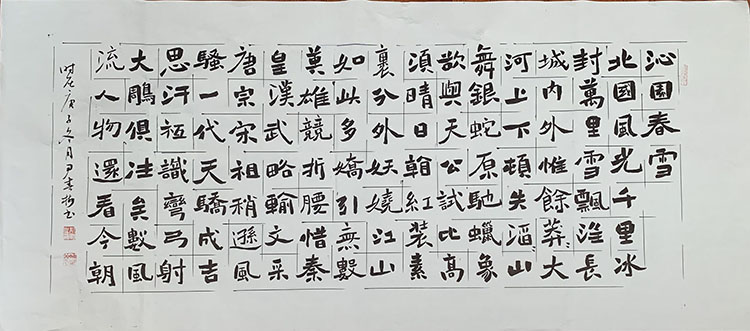 沁園春雪
北國風光千里冰
封萬里雪飄望長
城內外惟餘莽〻大
河上下頓失滔〻山
舞銀蛇原馳蠟象
欲與天公試比高
須晴日看紅裝素
裹分外妖嬈江山
如此多嬌引無數
英雄競折腰惜秦
皇漢武略輸文采
唐宗宋祖稍遜風
騷一代天驕成吉
思汗祗識彎弓射
大鵰俱往矣數風
流人物還看今朝
時在庚子冬月尹春書